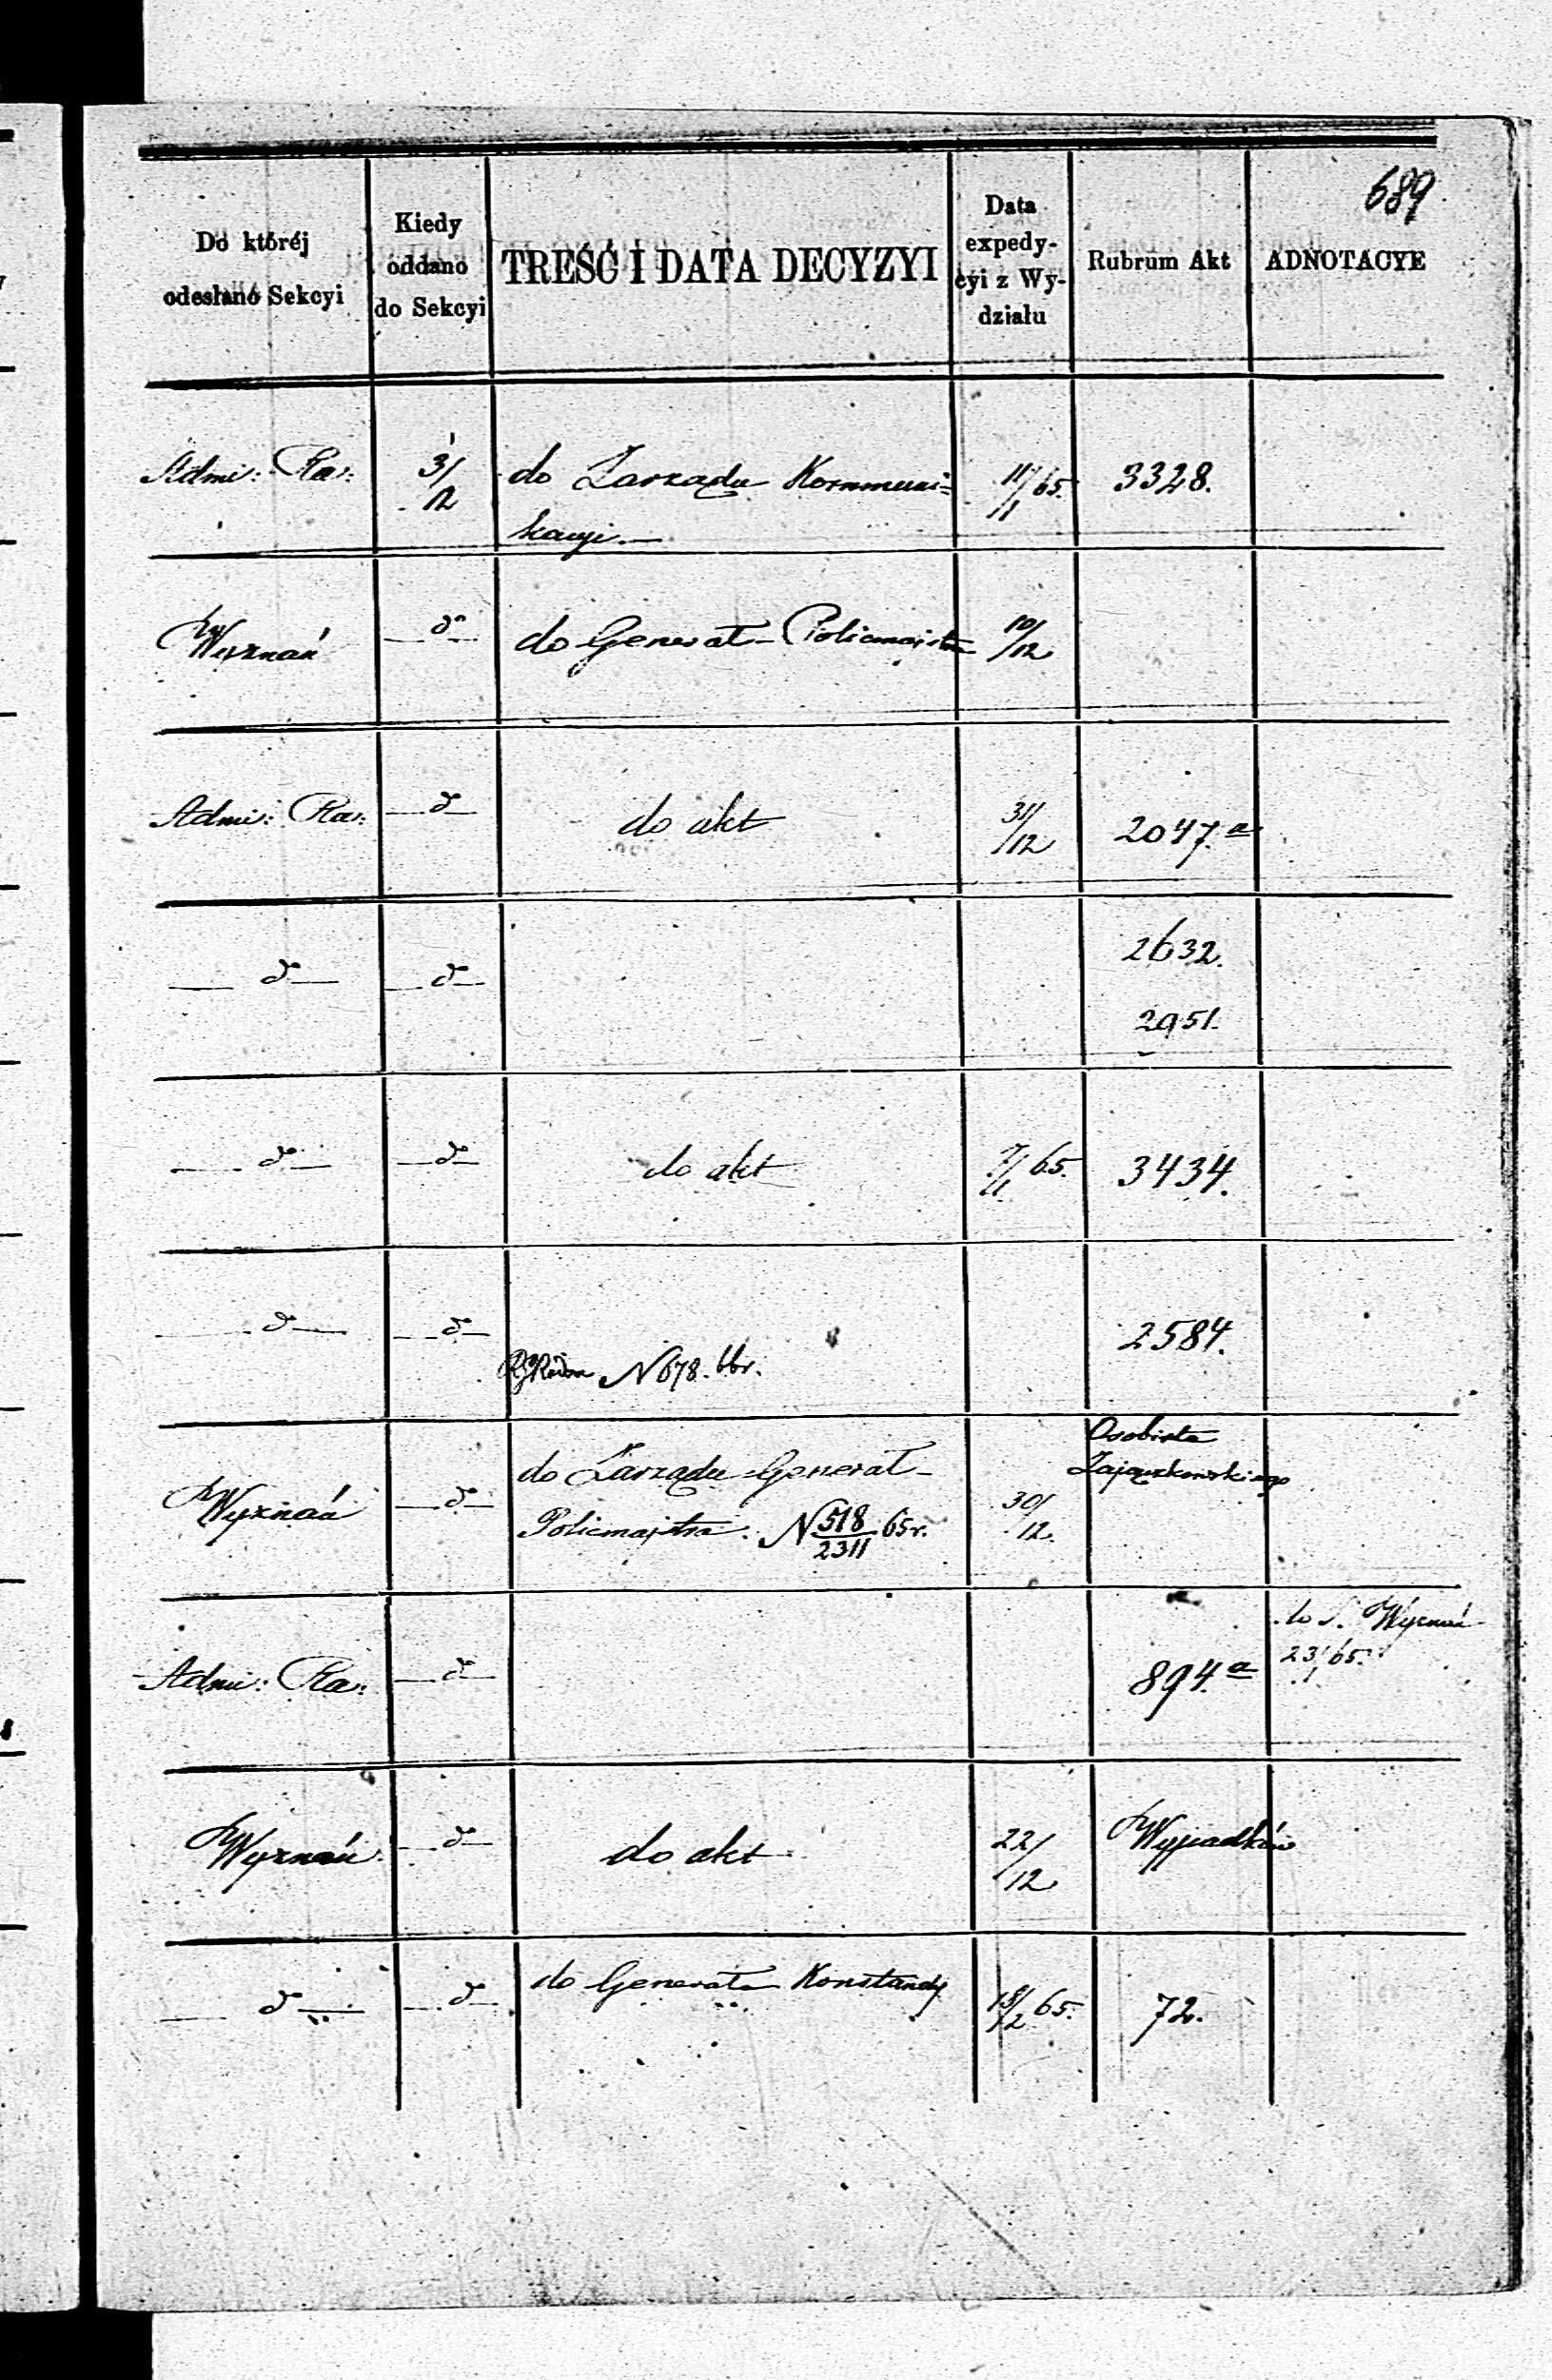 689
Do któréj odesłano Sekcyi
Kiedy oddano do Sekcyi
TREŚĆ I DATA DECYZYI
Data expedycyi z Wydziału
Rubrum Akt
ADNOTACYE
Admi: Ra: 3/12 do Zarządu Kommuni= 11/1 65. 3328.
kacyi.—
Wyznań — do — do Generał-Policmajstra 10/12
Admi: Ra: — do — do akt 31/12 2047.a
— do — — do — 2632.
2951.
— do — — do — do akt 7/1 65. 3434.
— do — — do — 2584.
N 678. 66r.
Wyznań — do — do Zarządu Generał- 30/12. Osobiste
Policmajstra. N 518/2311 65r. Zajączkowskiego
Admi: Ra: — do — 894.a do S. Wyznań
23/1 65.
Wyznań — do — do akt 22/12 Wypadków
— do — — do — do Generała Konstandy 18/2 65. 72.